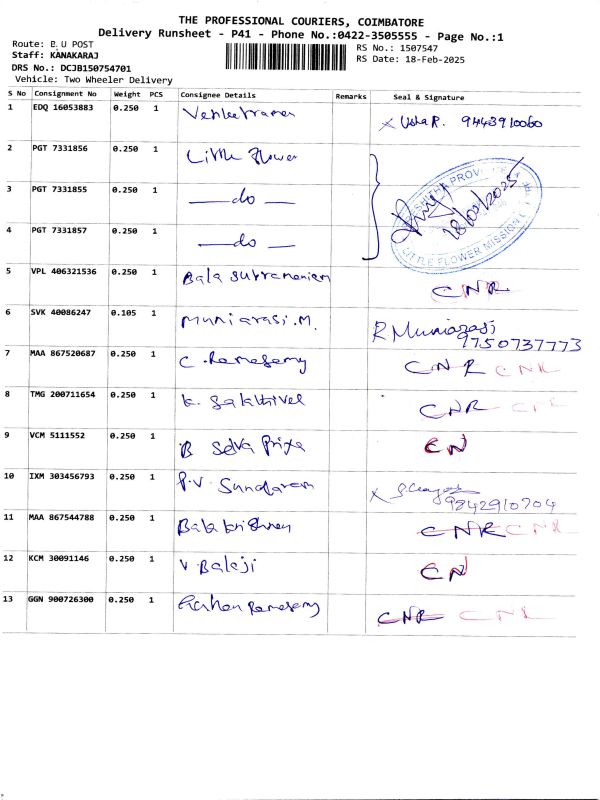 THE PROFESSIONAL COURIERS, COIMBATORE
Delivery Runsheet - P41 - Phone No.:0422-3505555 - Page No.:1
Route: B U POST
RS No.: 1507547
Staff: KANAKARAJ
RS Date: 18-Feb-2025
DRS No.: DCJB150754701
Vehicle: Two Wheeler Delivery
S No Consignment No Weight PCS Consignee Details Remarks Seal & Signature
1 EDQ 16053883 0.250 1 Venketraman x Usha R. 9443910060
2 PGT 7331856 0.250 1 Little Flower
3 PGT 7331855 0.250 1 —do—
18/02/2025
LITTLE FLOWER MISSION
4 PGT 7331857 0.250 1 —do—
5 VPL 406321536 0.250 1 Bala Subramaniam CNR
6 SVK 40086247 0.105 1 Muniarasi.M. R Muniarasi
9750737773
7 MAA 867520687 0.250 1 C. Ramasamy CNR CNR
8 TMG 200711654 0.250 1 K. Sakthivel CNR CNR
9 VCM 5111552 0.250 1 B Selva Priya CN
10 IXM 303456793 0.250 1 P.V. Sundaram x
9842910704
11 MAA 867544788 0.250 1 Balakrishnan CNR CNR
12 KCM 30091146 0.250 1 V Balaji CN
13 GGN 900726300 0.250 1 Ramasamy CNR CNR